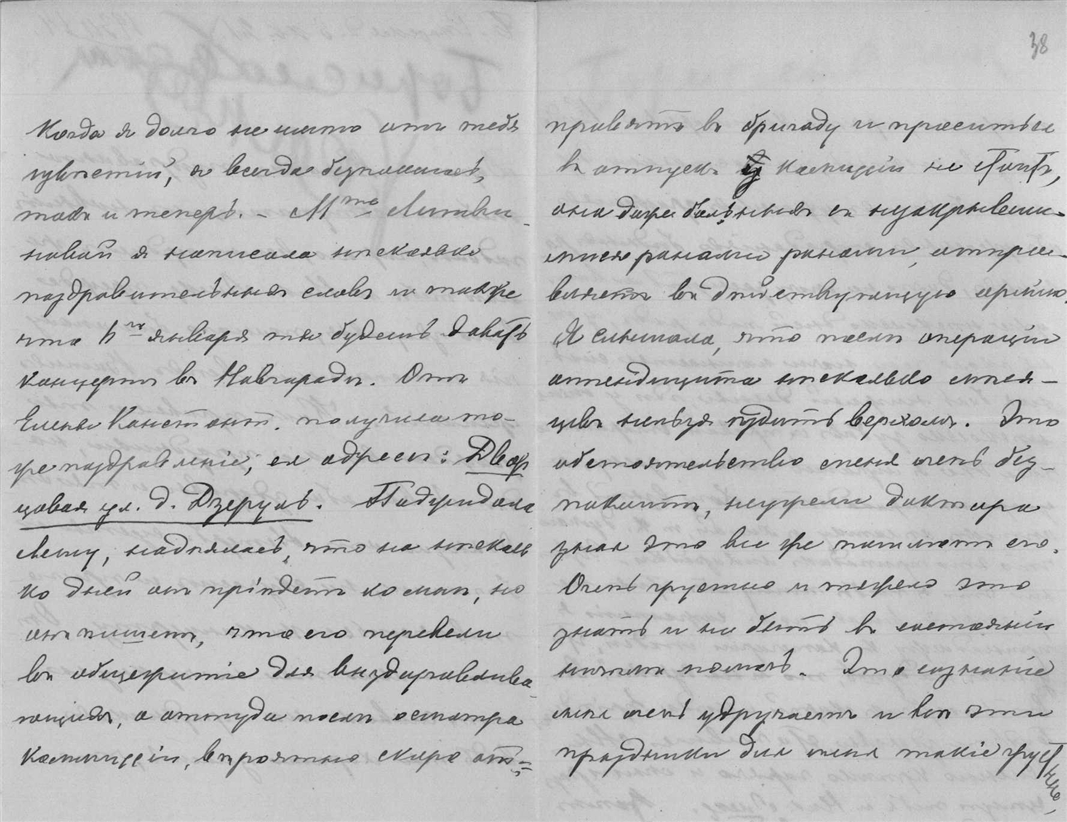 Когда я долго не имею отъ тебя
извѣстій, я всегда безпокоюсь,
такъ и теперь. – Mme Литви-
новой я написала нѣсколько
поздравительныхъ словъ и также
что января ты будешь давать
концертъ въ Новгородѣ. Отъ
Елены Констант. получила то-
же поздравленіе, ея адресъ: Двор-
цовая ул. д. Дзерулъ. Поджидала
Лёшу, надѣялась, что на нѣсколь
ко дней онъ пріѣдетъ ко мнѣ, но
онъ пишетъ, что его перевели
въ общежитіе для выздоравлива-
ющихъ, а оттуда послѣ осмотра
коммиссіи, вѣроятно скоро от-
38
правятъ въ бригаду и проситься
въ отпускъ у коммиссіи не стоитъ,
она даже больныхъ съ незакрывши-
мися ранами, отпра-
вляетъ въ дѣйствующую армію.
Я слышала, что послѣ операціи
аппендицита нѣсколько мѣся-
цевъ нельзя ѣздить верхомъ. Это
обстоятельство меня очень без-
покоитъ, неужели доктора
зная это все же пошлютъ его.
Очень грустно и тяжело это
знать и не быть въ состояніи
ничѣмъ помочь. Это сознаніе
меня очень удручаетъ и вотъ эти
праздники для меня такіе грустные,